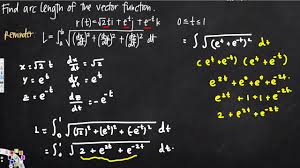 Find arc length of the vector function.
r(t) = √2 t i + e^t j + e^-t k    0 ≤ t ≤ 1
Reminder: L = ∫₀¹ √((dx/dt)² + (dy/dt)² + (dz/dt)²) dt
x = √2 t    dx/dt = √2
y = e^t    dy/dt = e^t
z = e^-t    dz/dt = -e^-t
L = ∫₀¹ √((√2)² + (e^t)² + (-e^-t)²) dt
= ∫₀¹ √(2 + e^2t + e^-2t) dt
∫ √((e^t + e^-t)²) dt
(e^t + e^-t)(e^t + e^-t)
e^2t + e^0 + e^0 + e^-2t
e^2t + 1 + 1 + e^-2t
2 + e^2t + e^-2t